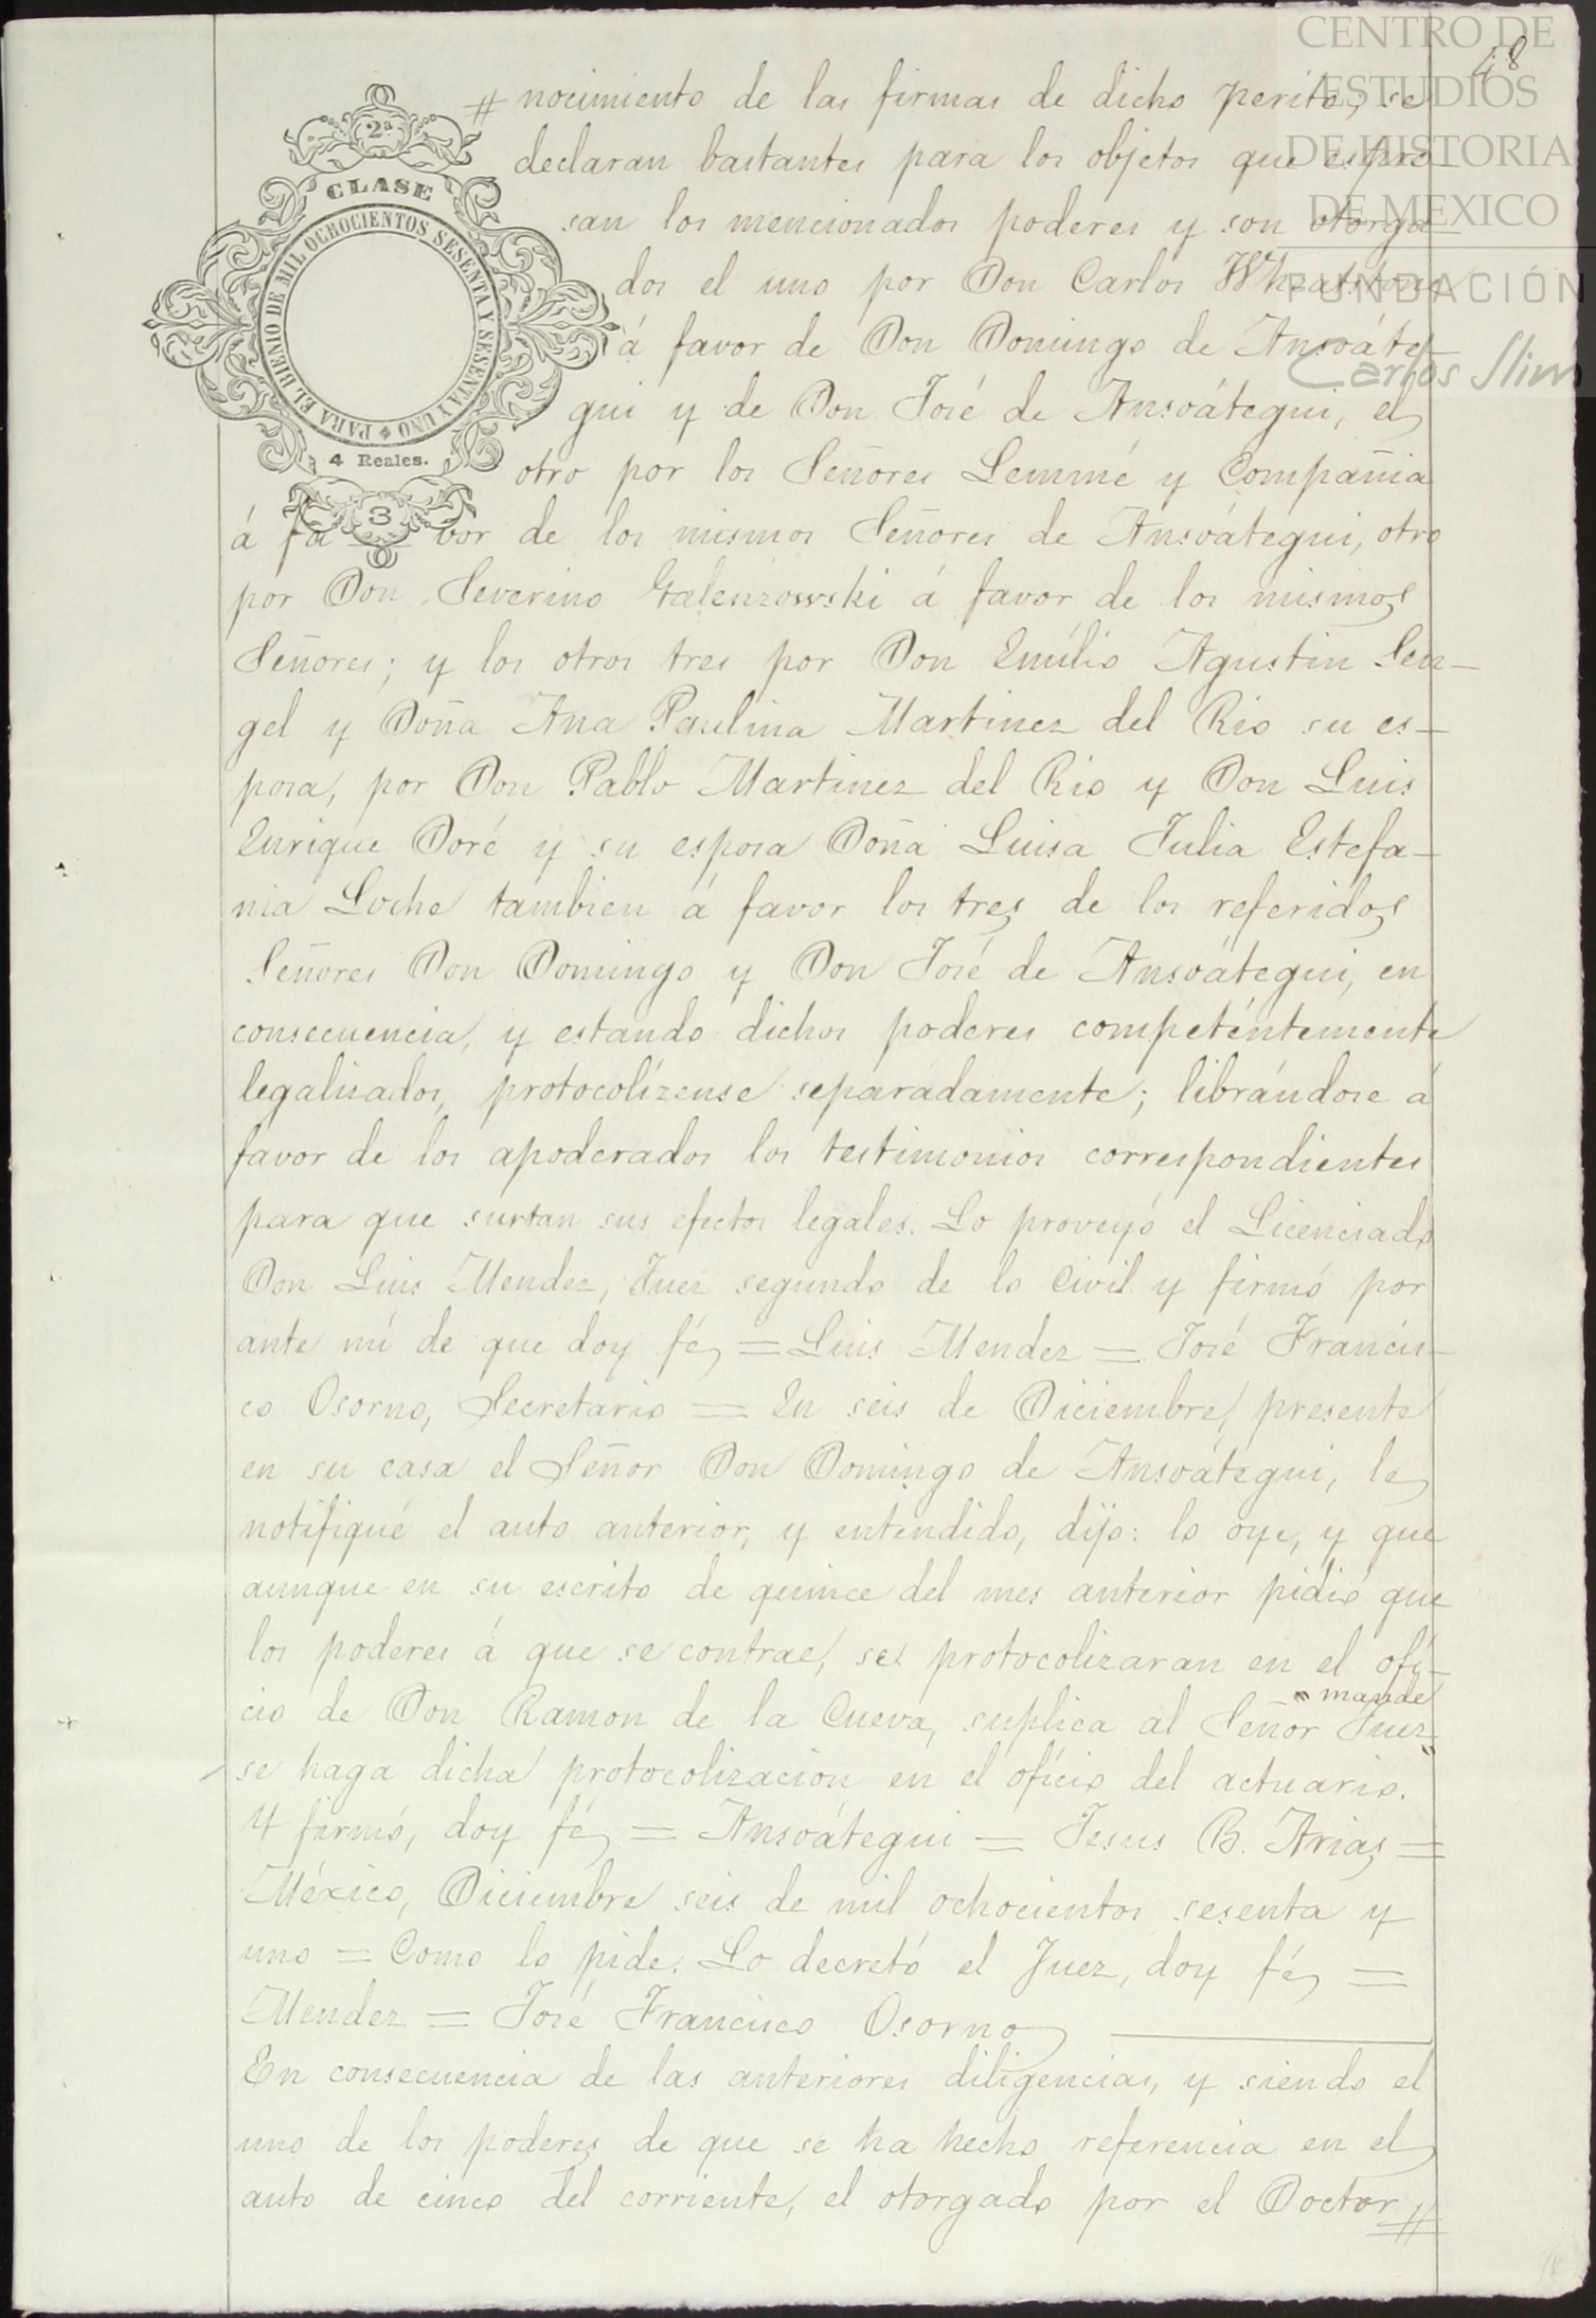 CENTRO DE
ESTUDIOS
DE HISTORIA
DE MEXICO
FUNDACIÓN
Carlos Slim
48
2ª
CLASE
PARA EL BIENIO DE MIL OCHOCIENTOS SESENTA Y SESENTA Y UNO
4 Reales.
3
# nocimiento de las firmas de dicho perito, se
declaran bastantes para los objetos que espre
san los mencionados poderes y son otorga
dos el uno por Don Carlos Wheatstone
á favor de Don Domingo de Ansoáte-
gui y de Don José de Ansoátegui, el
otro por los Señores Lemmé y Compañia
á favor de los mismos Señores de Ansoátegui, otro
por Don Severino Galenzowski á favor de los mismos
Señores; y los otros tres por Don Emilio Agustin Sen-
gel y Doña Ana Paulina Martinez del Rio su es-
posa, por Don Pablo Martinez del Rio y Don Luis
Enrique Doré y su esposa Doña Luisa Julia Estefa-
nia Loche tambien á favor los tres de los referidos
Señores Don Domingo y Don José de Ansoátegui, en
consecuencia, y estando dichos poderes competéntemente
legalizados, protocolízense separadamente; librándose á
favor de los apoderados los testimonios correspondientes
para que surtan sus efectos legales. Lo proveyó el Licenciado
Don Luis Mendez, Juez segundo de lo Civil y firmó por
ante mí de que doy fé = Luis Mendez = José Francis-
co Osorno, Secretario = En seis de Diciembre, presente
en su casa el Señor Don Domingo de Ansoátegui, le
notifiqué el auto anterior, y entendido, dijo: lo oye, y que
aunque en su escrito de quince del mes anterior pidió que
los poderes á que se contrae, se protocolizaran en el ofi-
cio de Don Ramon de la Cueva, suplica al Señor Juez
" mande "
se haga dicha protocolizacion en el oficio del actuario.
Y firmó, doy fé = Ansoátegui = Jesus B. Arias =
México, Diciembre seis de mil ochocientos sesenta y
uno = Como lo pide. Lo decretó el Juez, doy fé =
Mendez = José Francisco Osorno
En consecuencia de las anteriores diligencias, y siendo el
uno de los poderes de que se ha hecho referencia en el
auto de cinco del corriente, el otorgado por el Doctor #